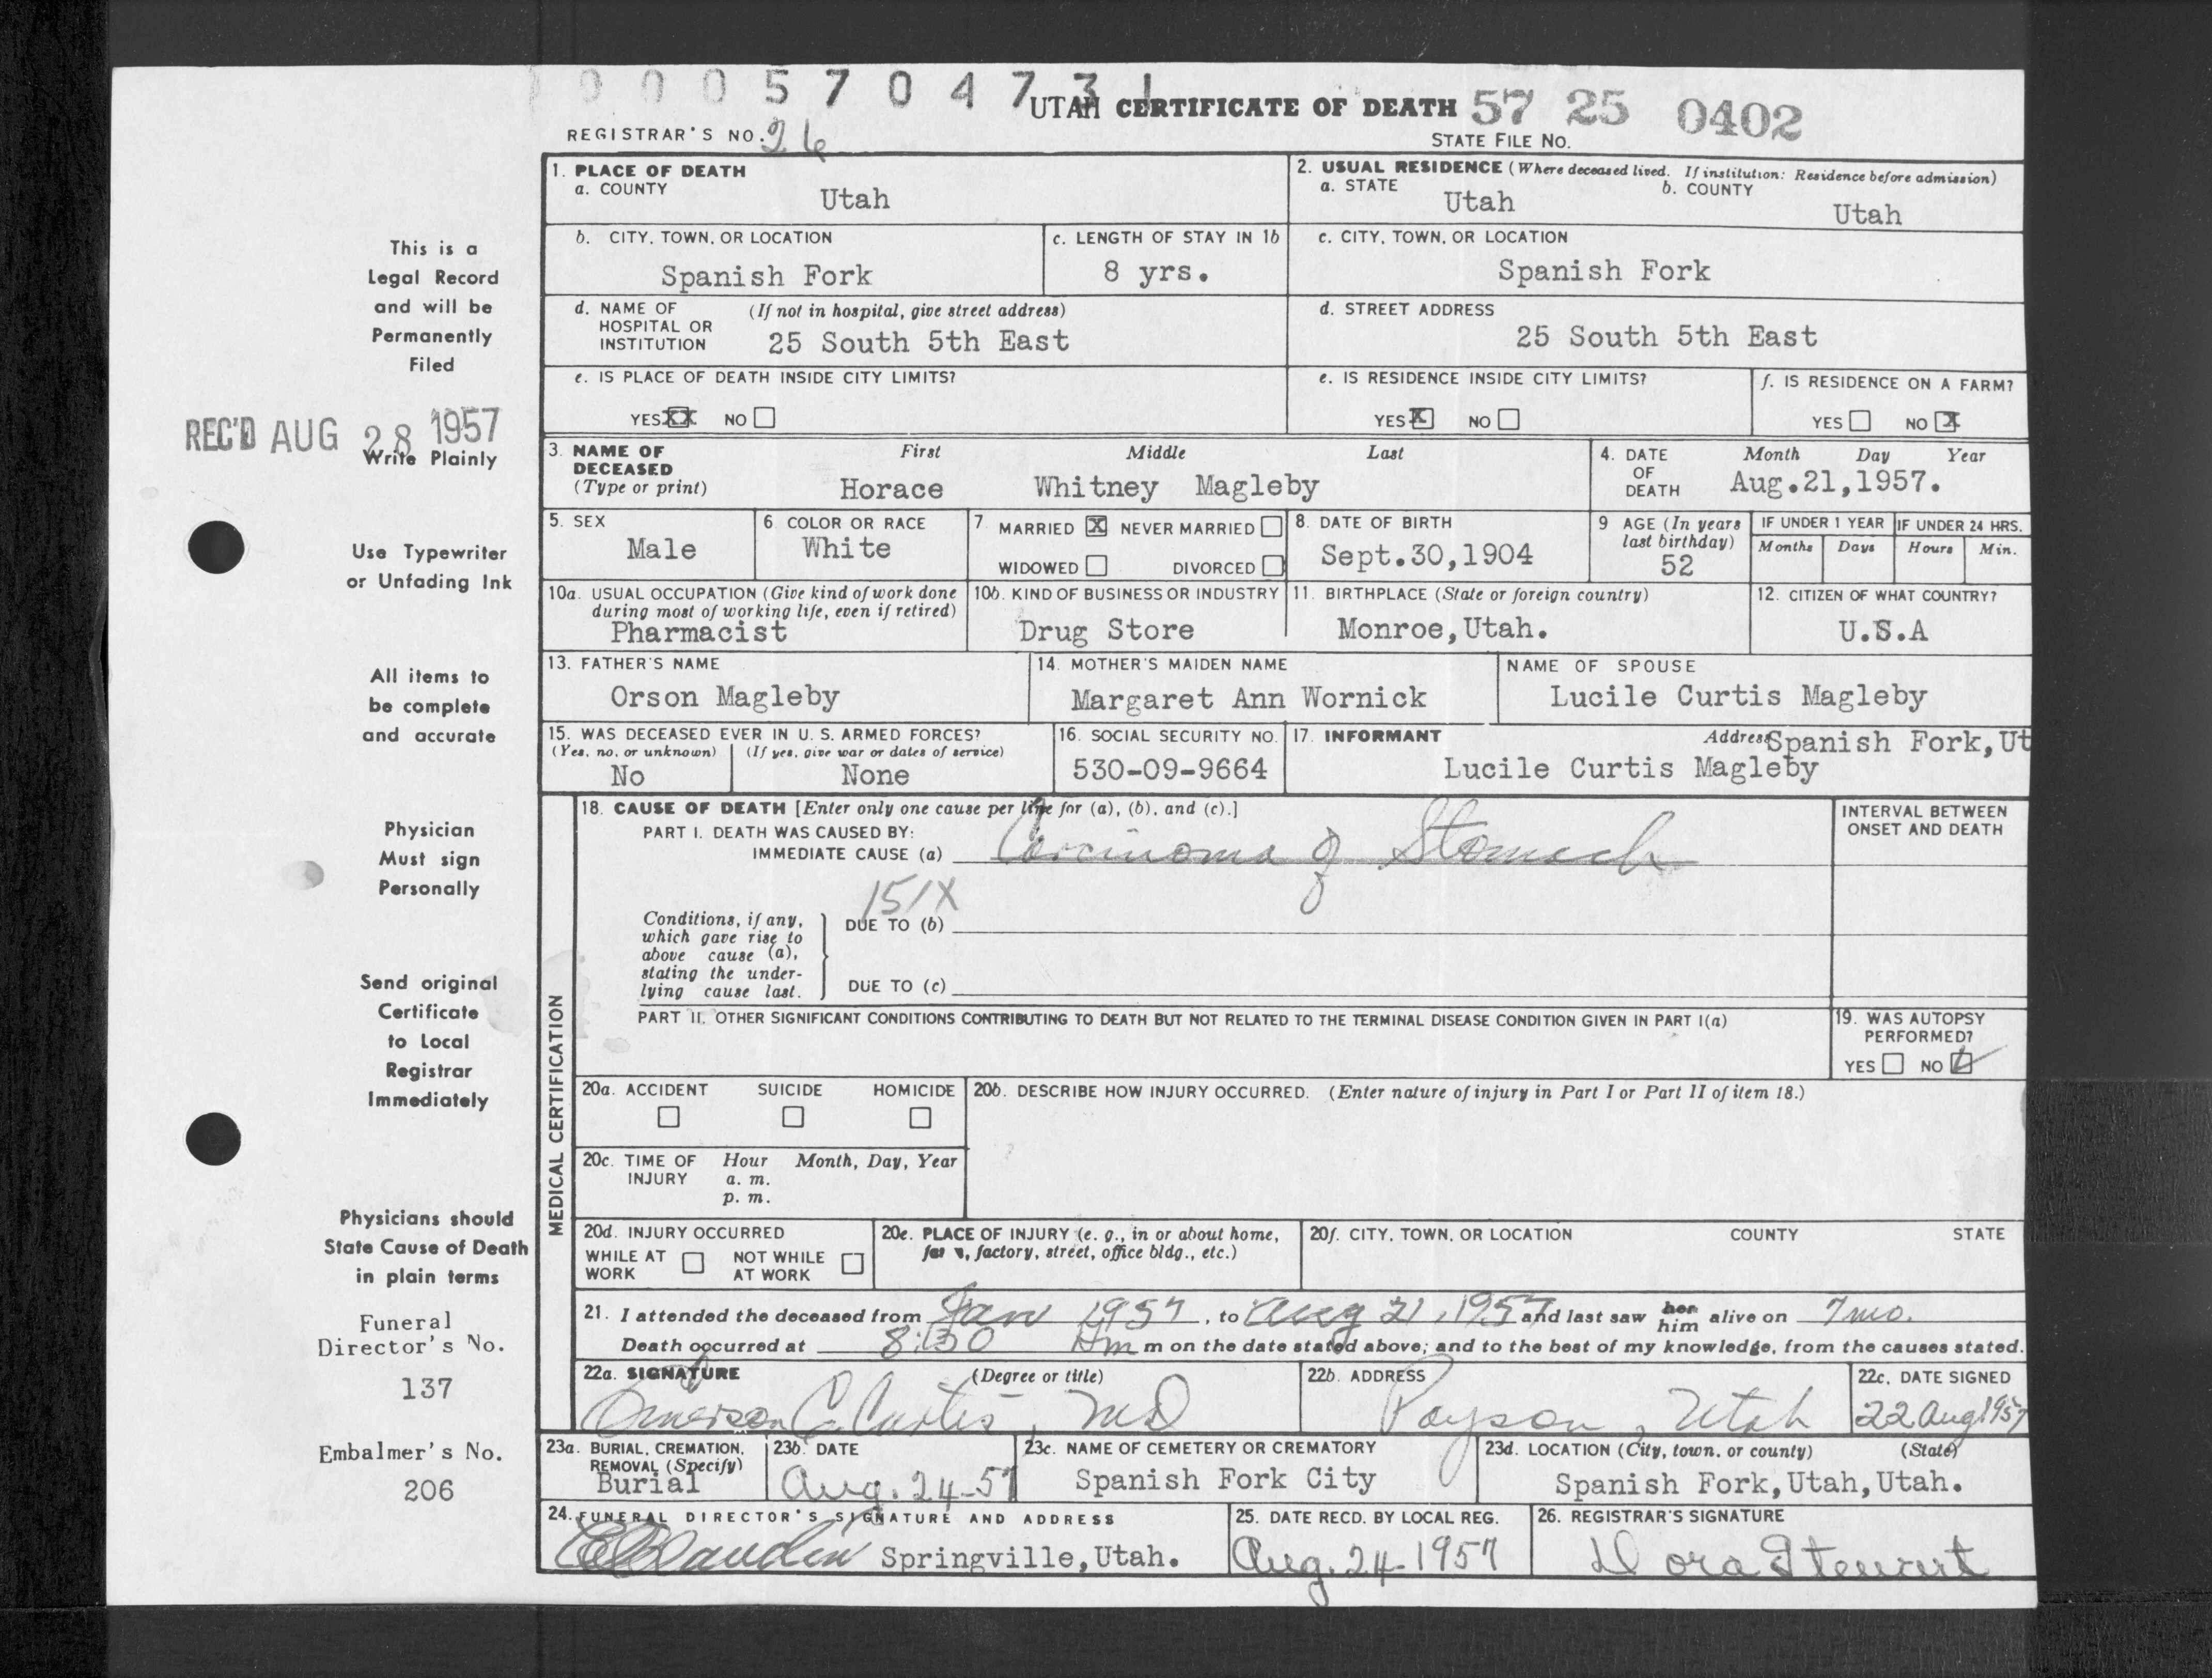 0 0 0 5 7 0 4 7 3 1
UTAH CERTIFICATE OF DEATH 57 25 0402
REGISTRAR'S NO. 26
STATE FILE NO.
1. PLACE OF DEATH
a. COUNTY
Utah
2. USUAL RESIDENCE (Where deceased lived. If institution: Residence before admission)
a. STATE
Utah
b. COUNTY
Utah
b. CITY, TOWN, OR LOCATION
Spanish Fork
c. LENGTH OF STAY IN 1b
8 yrs.
c. CITY, TOWN, OR LOCATION
Spanish Fork
d. NAME OF HOSPITAL OR INSTITUTION
(If not in hospital, give street address)
25 South 5th East
d. STREET ADDRESS
25 South 5th East
e. IS PLACE OF DEATH INSIDE CITY LIMITS?
YES XX NO
e. IS RESIDENCE INSIDE CITY LIMITS?
YES X NO
f. IS RESIDENCE ON A FARM?
YES NO X
3. NAME OF DECEASED
(Type or print)
First Middle Last
Horace Whitney Magleby
4. DATE OF DEATH
Month Day Year
Aug.21,1957.
5. SEX
Male
6. COLOR OR RACE
White
7. MARRIED X NEVER MARRIED
WIDOWED DIVORCED
8. DATE OF BIRTH
Sept.30,1904
9 AGE (In years last birthday)
52
IF UNDER 1 YEAR
Months Days
IF UNDER 24 HRS.
Hours Min.
10a. USUAL OCCUPATION (Give kind of work done during most of working life, even if retired)
Pharmacist
10b. KIND OF BUSINESS OR INDUSTRY
Drug Store
11. BIRTHPLACE (State or foreign country)
Monroe,Utah.
12. CITIZEN OF WHAT COUNTRY?
U.S.A
13. FATHER'S NAME
Orson Magleby
14. MOTHER'S MAIDEN NAME
Margaret Ann Wornick
NAME OF SPOUSE
Lucile Curtis Magleby
15. WAS DECEASED EVER IN U. S. ARMED FORCES?
(Yes, no, or unknown) (If yes, give war or dates of service)
No None
16. SOCIAL SECURITY NO.
530-09-9664
17. INFORMANT
Address Spanish Fork,Ut
Lucile Curtis Magleby
MEDICAL CERTIFICATION
18. CAUSE OF DEATH [Enter only one cause per line for (a), (b), and (c).]
PART I. DEATH WAS CAUSED BY:
IMMEDIATE CAUSE (a) Carcinoma of Stomach
INTERVAL BETWEEN ONSET AND DEATH
151X
Conditions, if any, which gave rise to above cause (a), stating the underlying cause last.
DUE TO (b)
DUE TO (c)
PART II. OTHER SIGNIFICANT CONDITIONS CONTRIBUTING TO DEATH BUT NOT RELATED TO THE TERMINAL DISEASE CONDITION GIVEN IN PART I(a)
19. WAS AUTOPSY PERFORMED?
YES NO
20a. ACCIDENT SUICIDE HOMICIDE
20b. DESCRIBE HOW INJURY OCCURRED. (Enter nature of injury in Part I or Part II of item 18.)
20c. TIME OF INJURY
Hour Month, Day, Year
a. m.
p. m.
20d. INJURY OCCURRED
WHILE AT WORK
NOT WHILE AT WORK
20e. PLACE OF INJURY (e. g., in or about home, farm, factory, street, office bldg., etc.)
20f. CITY, TOWN, OR LOCATION COUNTY STATE
21. I attended the deceased from Jan 1957, to Aug 21, 1957 and last saw her him alive on 7 mo.
Death occurred at 8:30 m on the date stated above; and to the best of my knowledge, from the causes stated.
22a. SIGNATURE (Degree or title)
Curtis, MD
22b. ADDRESS
Payson, Utah
22c. DATE SIGNED
22 Aug 1957
23a. BURIAL, CREMATION, REMOVAL (Specify)
Burial
23b. DATE
Aug. 24-57
23c. NAME OF CEMETERY OR CREMATORY
Spanish Fork City
23d. LOCATION (City, town, or county) (State)
Spanish Fork,Utah,Utah.
24. FUNERAL DIRECTOR'S SIGNATURE AND ADDRESS
Springville,Utah.
25. DATE RECD. BY LOCAL REG.
Aug. 24-1957
26. REGISTRAR'S SIGNATURE
Dora Stewart
This is a
Legal Record
and will be
Permanently
Filed
REC'D AUG 28 1957
Write Plainly
Use Typewriter
or Unfading Ink
All items to
be complete
and accurate
Physician
Must sign
Personally
Send original
Certificate
to Local
Registrar
Immediately
Physicians should
State Cause of Death
in plain terms
Funeral
Director's No.
137
Embalmer's No.
206